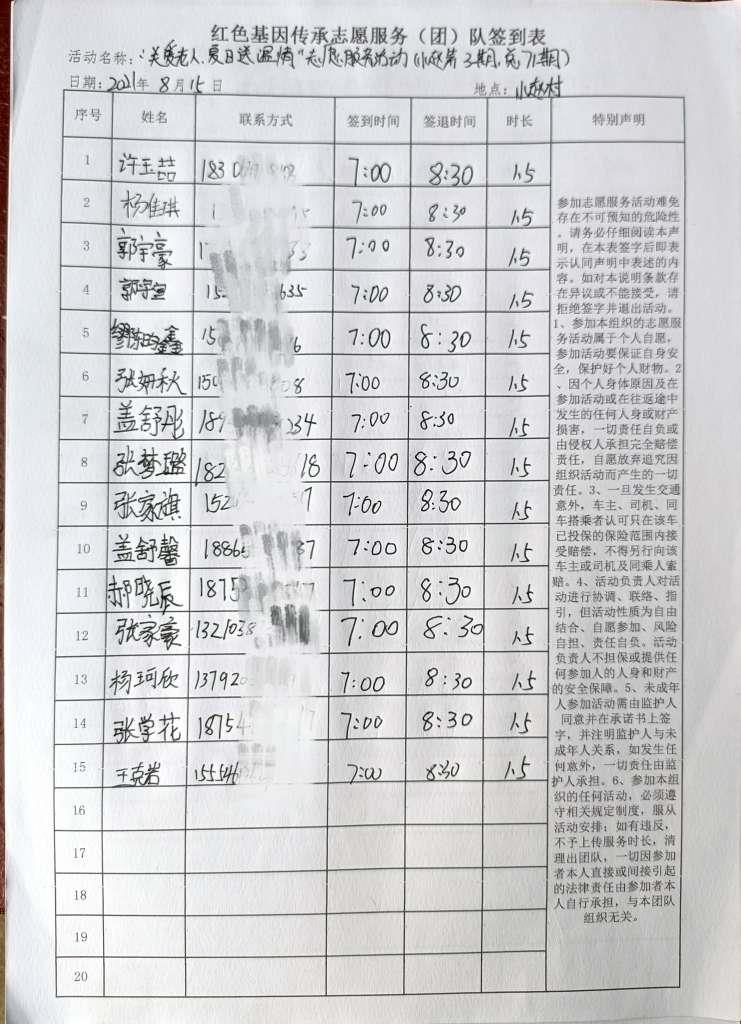 红色基因传承志愿服务（团）队签到表
活动名称：“关爱老人、夏日送温情”志愿服务活动（小赵第3期，总71期）
日期：2021年 8月15日 地点：小赵村
序号 姓名 联系方式 签到时间 签退时间 时长 特别声明
1 许玉喆 183 7:00 8:30 1.5
2 杨佳琪 1 7:00 8:30 1.5
3 郭宇豪 1 7:00 8:30 1.5
4 郭宇宣 15 635 7:00 8:30 1.5
5 15 6 7:00 8:30 1.5
6 张妍秋 150 08 7:00 8:30 1.5
7 盖舒彤 189 234 7:00 8:30 1.5
8 张梦璐 182 18 7:00 8:30 1.5
9 张家旗 152 7 7:00 8:30 1.5
10 盖舒馨 1886 37 7:00 8:30 1.5
11 郝晓辰 1875 7:00 8:30 1.5
12 张家豪 132103 7:00 8:30 1.5
13 杨珂欣 13792 7:00 8:30 1.5
14 张学花 18754 7 7:00 8:30 1.5
15 王克岩 15554 7:00 8:30 1.5
16
17
18
19
20
参加志愿服务活动难免
存在不可预知的危险性
。请务必仔细阅读本声
明，在本表签字后即表
示认同声明中表述的内
容。如对本说明条款存
在异议或不能接受，请
拒绝签字并退出活动。
1、参加本组织的志愿服
务活动属于个人自愿，
参加活动要保证自身安
全，保护好个人财物。2
、因个人身体原因及在
参加活动或在往返途中
发生的任何人身或财产
损害，一切责任自负或
由侵权人承担完全赔偿
责任，自愿放弃追究因
组织活动而产生的一切
责任。3、一旦发生交通
意外，车主、司机、同
车搭乘者认可只在该车
已投保的保险范围内接
受赔偿，不得另行向该
车主或司机及同乘人索
赔。4、活动负责人对活
动进行协调、联络、指
引，但活动性质为自由
结合、自愿参加、风险
自担、责任自负。活动
负责人不担保或提供任
何参加人的人身和财产
的安全保障。5、未成年
人参加活动需由监护人
同意并在承诺书上签
字，并注明监护人与未
成年人关系，如发生任
何意外，一切责任由监
护人承担。6、参加本组
织的任何活动，必须遵
守相关规定制度，服从
活动安排；如有违反，
不予上传服务时长，清
理出团队，一切因参加
者本人直接或间接引起
的法律责任由参加者本
人自行承担，与本团队
组织无关。